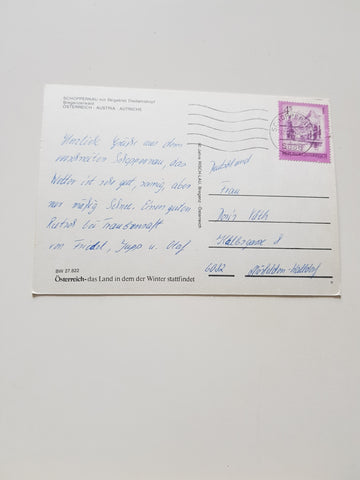 SCHOPPERNAU mit Skigebiet Diedamskopf
Bregenzerwald
ÖSTERREICH - AUSTRIA - AUTRICHE
Herzliche Grüße aus dem
verschneiten Schoppernau, das
Wetter ist sehr gut, sonnig, aber
nur mäßig Schnee. Einen guten
Rutsch bei Frauenschaft
von Friedel, u. Olaf
BW 27.822
Österreich-das Land in dem der Winter stattfindet
RISCH-LAU, Bregenz, Österreich
Deutschland
Frau
Doris
8
6082 Mörfelden-Walldorf